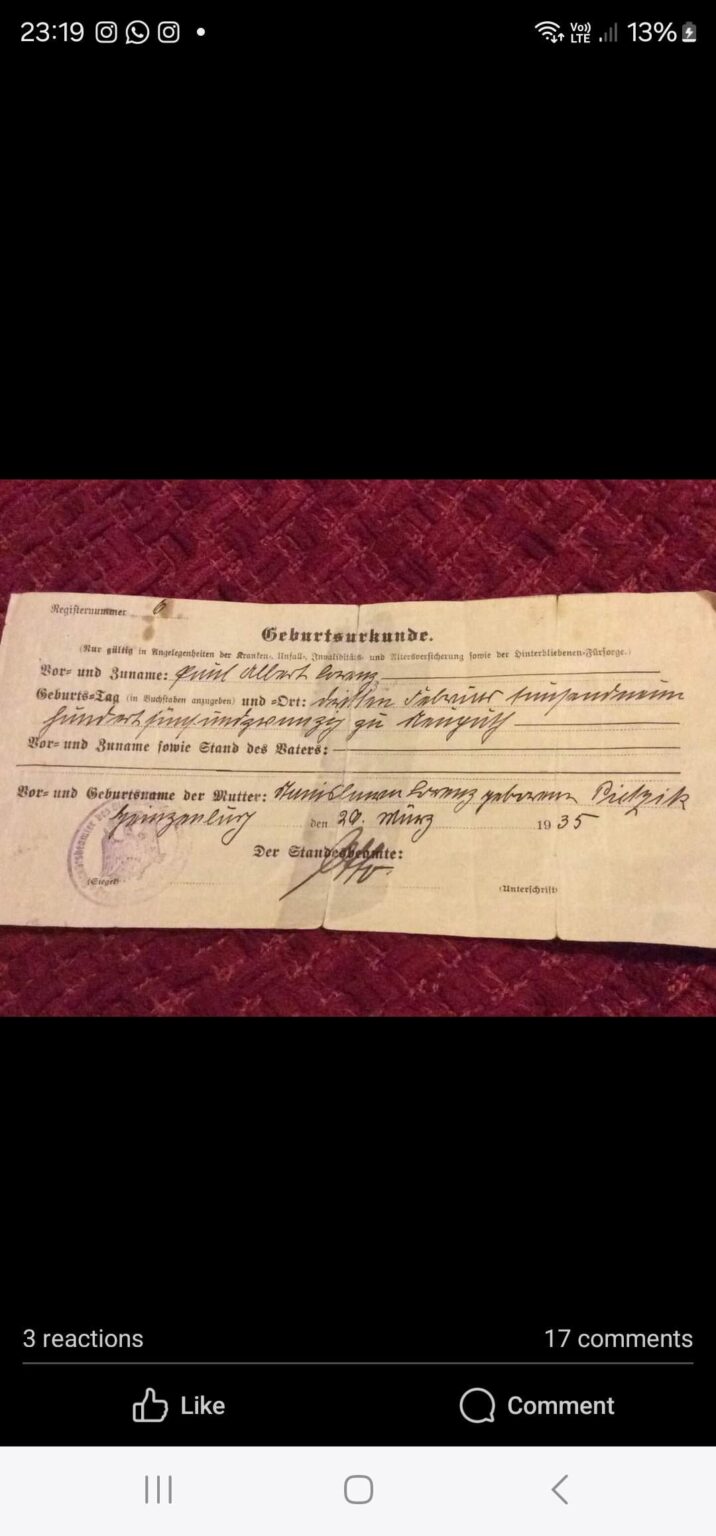 23:19
Vo)) LTE 13%
Registernummer 6
Geburtsurkunde.
(Nur gültig in Angelegenheiten der Kranken-, Unfall-, Invaliditäts- und Altersversicherung sowie der Hinterbliebenen-Fürsorge.)
Vor- und Zuname: Paul Albert Lorenz
Geburts-Tag (in Buchstaben anzugeben) und -Ort: dritten Februar tausendneun
hundertfünfundzwanzig zu
Vor- und Zuname sowie Stand des Vaters:
Vor- und Geburtsname der Mutter: Stanislawa Lorenz geborene Pietzik
Heinzenburg den 29. März 1935
Der Standesbeamte:
Otto
(Siegel) (Unterschrift)
3 reactions 17 comments
Like Comment